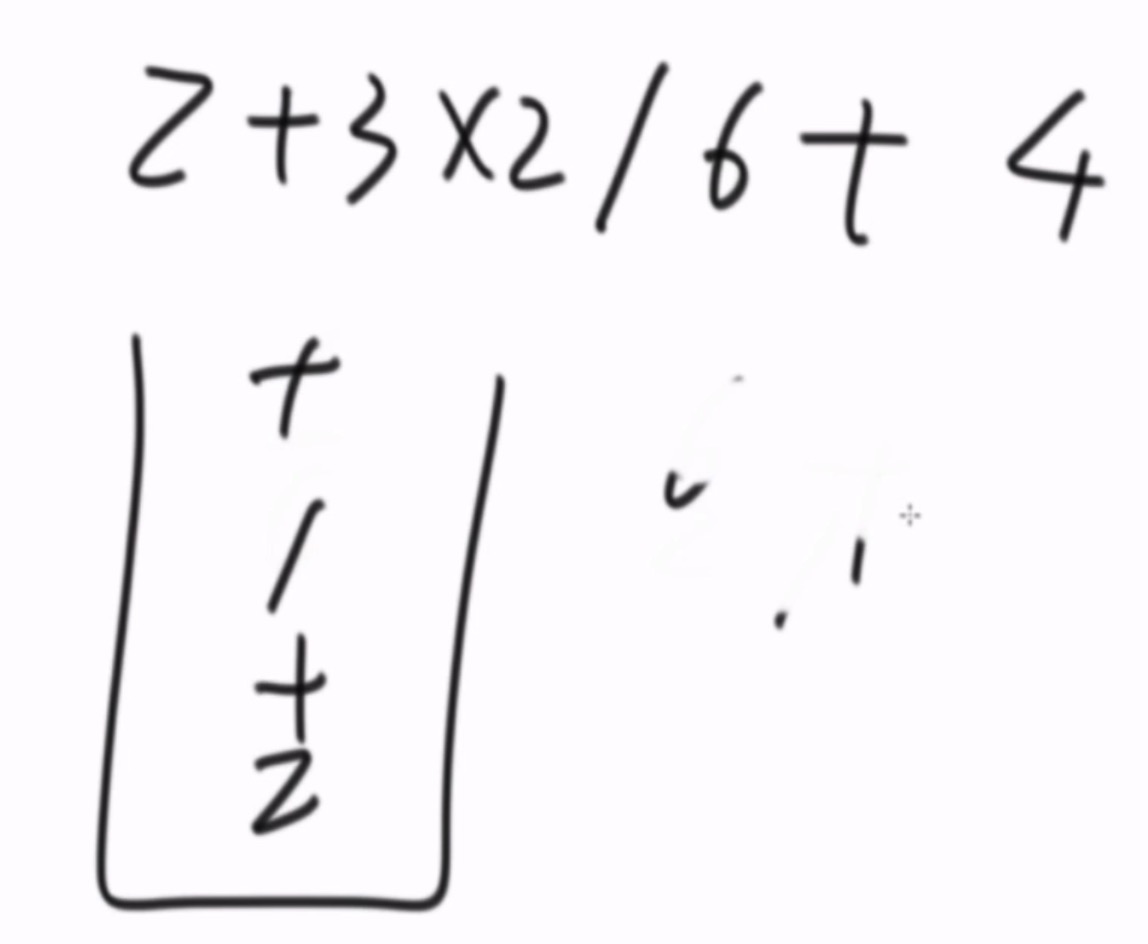 2+3×2/6+4
+
/
+
2